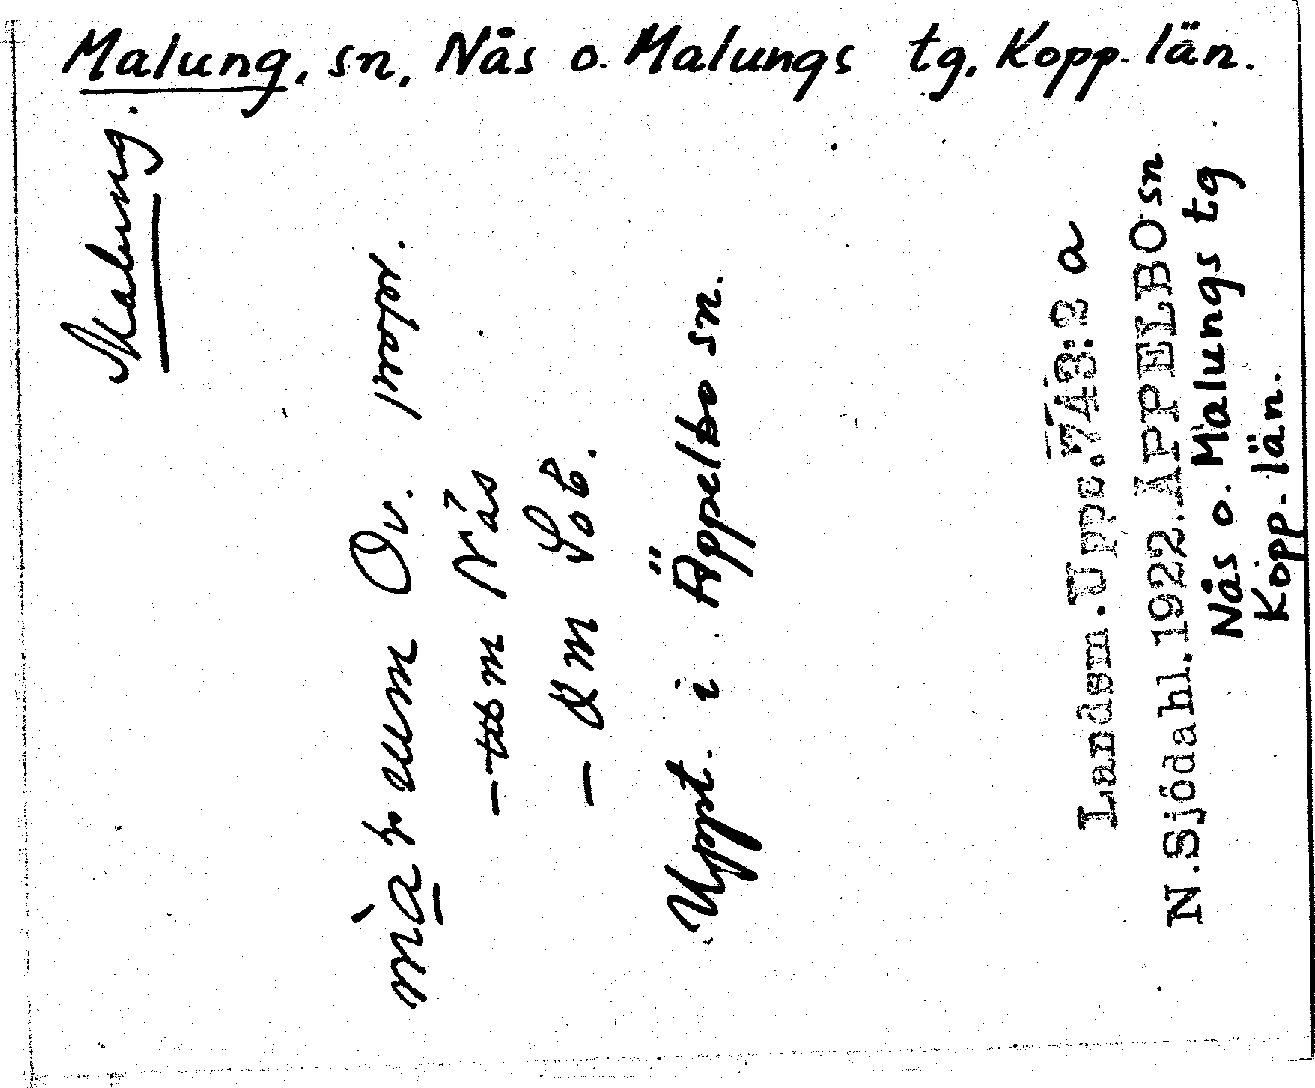 Malung, sn, Nås o. Malungs tg, Kopp. län.
Malung.
Ov.
Nås
Uppt. i Äppelbo sn.
Landsm. Upps. 743:2 a
N. Sjödahl, 1922. ÄPPELBO sn
Nås o. Malungs tg
Kopp. län.